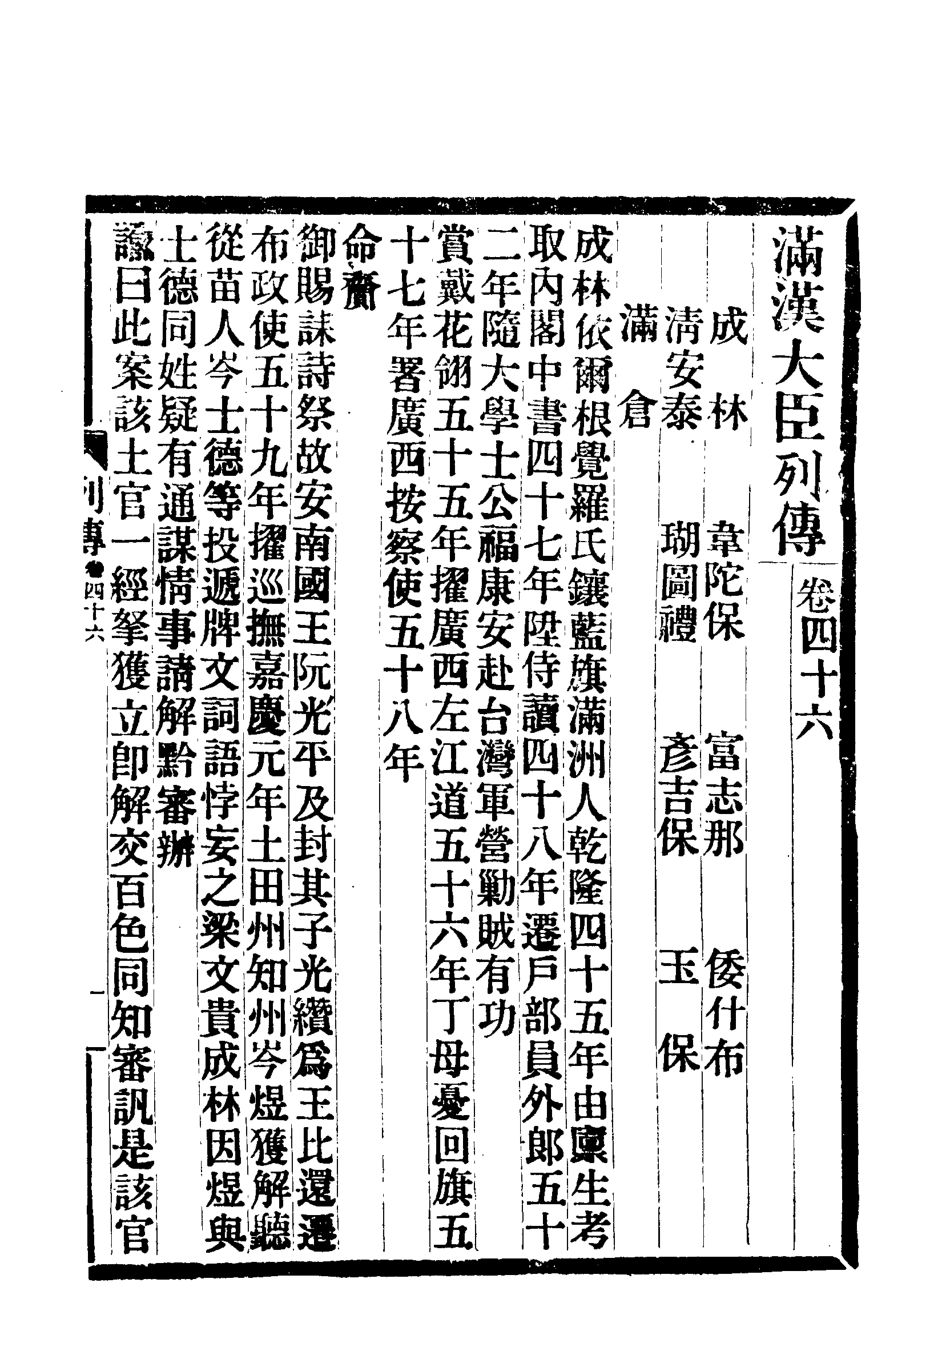 滿漢大臣列傳 卷四十六
成林 韋陀保 富志那 倭什布
清安泰 瑚圖禮 彥吉保 玉保
滿倉
成林依爾根覺羅氏鑲藍旗滿洲人乾隆四十五年由廩生考
取內閣中書四十七年陞侍讀四十八年遷戶部員外郎五十
二年隨大學士公福康安赴台灣軍營勦賊有功
賞戴花翎五十五年擢廣西左江道五十六年丁母憂回旗五
十七年署廣西按察使五十八年
命齎
御賜誄詩祭故安南國王阮光平及封其子光纘爲王比還遷
布政使五十九年擢巡撫嘉慶元年土田州知州岑煜獲解聽
從苗人岑士德等投遞牌文詞語悖妄之梁文貴成林因煜與
士德同姓疑有通謀情事請解黔審辦
諭曰此案該土官一經拏獲立卽解交百色同知審訊是該官
列傳 卷四十六 一